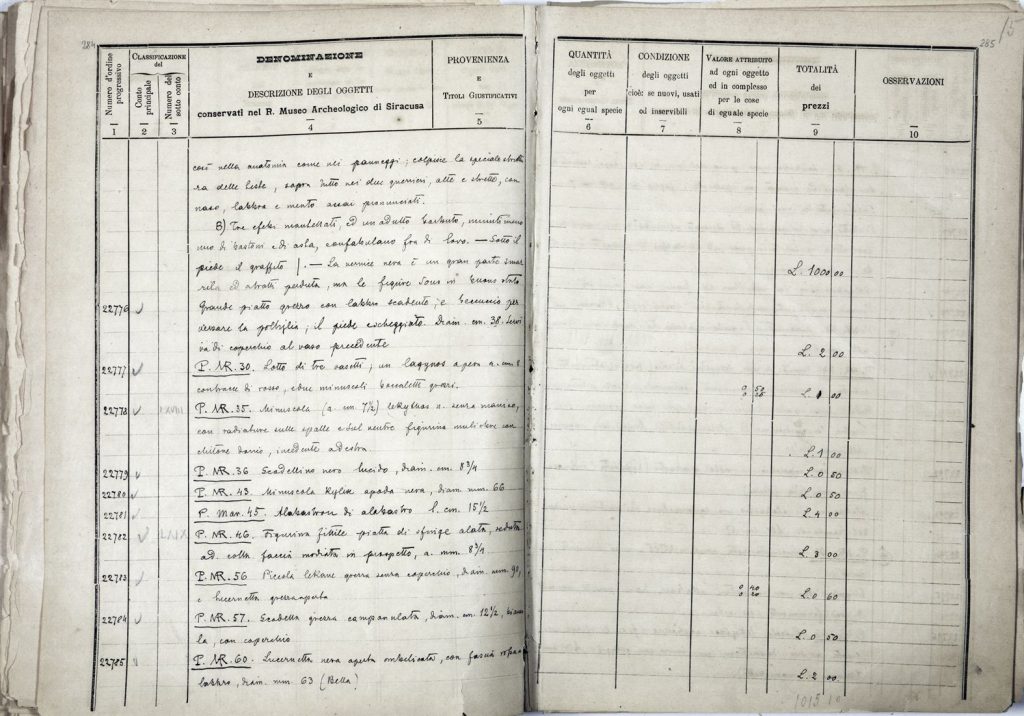 284
Numero d'ordine progressivo
1
CLASSIFICAZIONE del
Conto principale
2
Numero del sotto conto
3
DENOMINAZIONE
E
DESCRIZIONE DEGLI OGGETTI
conservati nel R. Museo Archeologico di Siracusa
4
PROVENIENZA
E
TITOLI GIUSTIFICATIVI
5
così nella anatomia come nei panneggi; colpisce la speciale
ra delle teste, sopra tutto nei due guerrieri, alte e strette, con
naso, labbra e mento assai pronunciati.
B) Tre efebi mantellati, ed un adulto barbuto, muniti meno
uno di bastoni e di asta, confabulano fra di loro. — Sotto il
piede il graffito — La vernice nera è in gran parte
ed a tratti perduta, ma le figure sono in buono stato
22776 Grande piatto grezzo con labbro scadente, e beccuccio per
versare la il piede scheggiato. Diam. cm. 38. Servi
va di coperchio al vaso precedente
22777 P. NR. 30. Lotto di tre vasetti, un lagynos a pera a. cm. 8
di rosso, e due minuscoli boccaletti grezzi.
22778 P. NR. 35. Minuscola (a. cm. 7 1/2) lekythos n. senza manico,
con radiature sulle spalle e sul ventre figurina muliebre con
chitone dorico, incedente a destra.
22779 P. NR. 36 Scodellino nero lucido, diam. cm. 8 3/4
22780 P. NR. 43. Minuscola kylix apoda nera, diam. mm. 66
22781 P. Mar. 45. Alabastron di alabastro l. cm. 15 1/2
22782 P. NR. 46. Figurina fittile piatta di sfinge alata, seduta
ad. colla faccia in prospetto, a. mm. 8 3/4
22783 P. NR. 56 Piccola lekane grezza senza coperchio, diam. mm. 90,
e lucernetta grezza aperta
22784 P. NR. 57. Scodella grezza campanulata, diam. cm. 12 1/2,
la, con coperchio
22785 P. NR. 60. Lucernetta nera aperta ombelicata, con fascia
labbro, diam. mm. 63 (Bella)
285
15
QUANTITÀ
degli oggetti
per
ogni egual specie
6
CONDIZIONE
degli oggetti
cioè: se nuovi, usati
od inservibili
7
VALORE ATTRIBUITO
ad ogni oggetto
ed in complesso
per le cose
di eguale specie
8
TOTALITÀ
dei
prezzi
9
OSSERVAZIONI
10
L. 1000 00
L. 2 00
0 50
0 25
L. 1 00
L. 1 00
L. 0 50
L. 0 50
L. 4 00
L. 3 00
0 40
0 20
L. 0 60
L. 0 50
L. 2 00